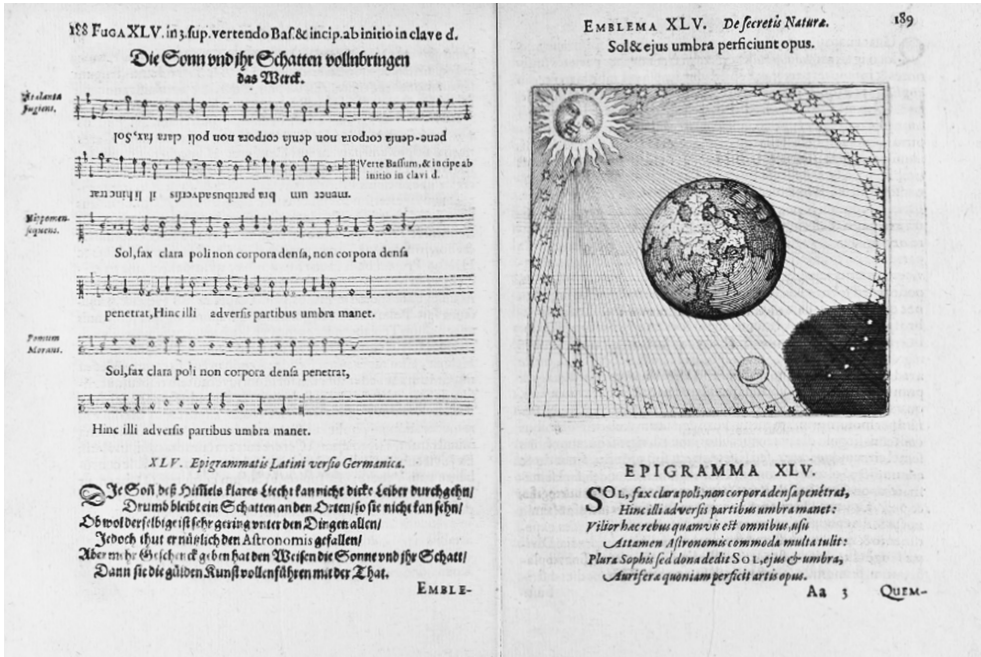 188 FUGA XLV. in 3. sup. vertendo Bas. & incip. ab initio in clave d.
Die Sonn vnd jhr Schatten vollnbringen
das Werck.
Atalanta
fugiens.
Verte Bassum, & incipe ab
initio in clavi d.
Hippomen-
sequens.
Sol, fax clara poli non corpora densa, non corpora densa
penetrat, Hinc illi adversis partibus umbra manet.
Pomum
Morans.
Sol, fax clara poli non corpora densa penetrat,
Hinc illi adversis partibus umbra manet.
XLV. Epigrammatis Latini versio Germanica.
DJe Sonn deß Himmels klares Liecht kan nicht dicke Leiber durchgehn/
Drumb bleibt ein Schatten an den Orten/ so sie nicht kan sehn/
Ob wol derselbige ist sehr gering vnter den Dingen allen/
Jedoch thut er nützlich den Astronomis gefallen/
Aber mehr Geschenck geben hat den Weisen die Sonne vnd jhr Schatt/
Dann sie die gülden Kunst vollenführen mit der That.
EMBLE-
EMBLEMA XLV. De secretis Naturæ. 189
Sol & ejus umbra perficiunt opus.
EPIGRAMMA XLV.
SOL, fax clara poli, non corpora densa penetrat,
Hinc illi adversis partibus umbra manet:
Vilior hæc rebus quamvis est omnibus, usu
Attamen Astronomis commoda multa tulit:
Plura Sophis sed dona dedit SOL, ejus & umbra,
Auriferæ quoniam perficit artis opus.
Aa 3 QUEM-